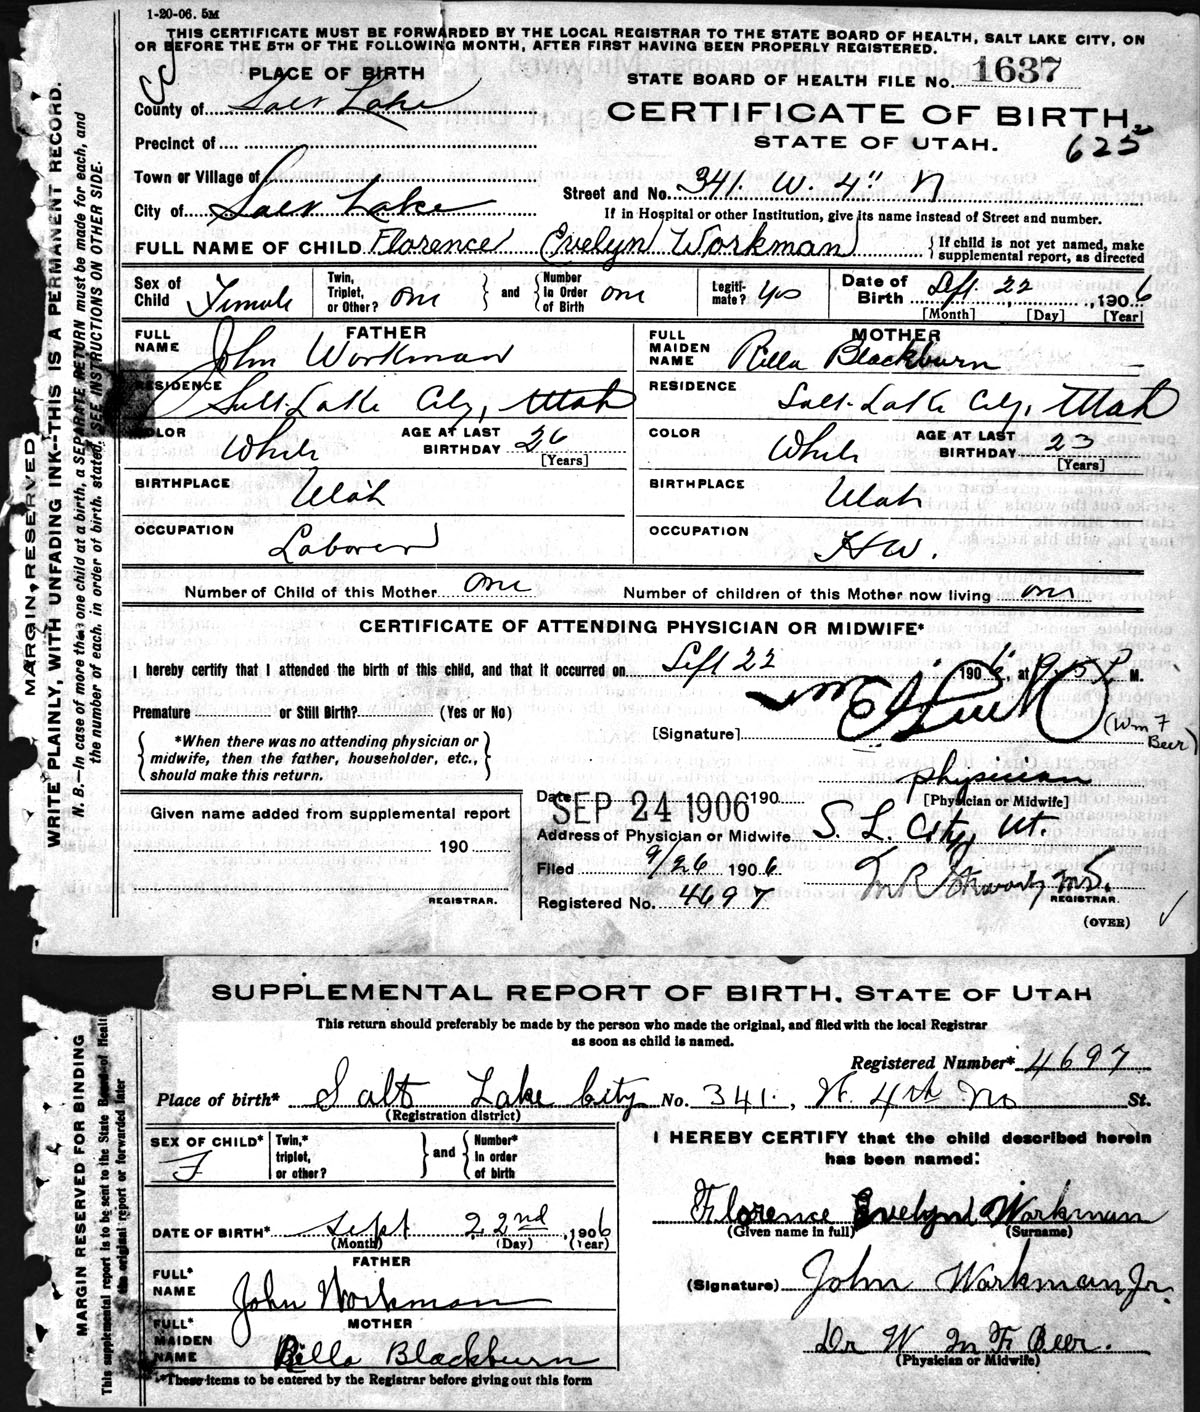 1-20-06. 5M
THIS CERTIFICATE MUST BE FORWARDED BY THE LOCAL REGISTRAR TO THE STATE BOARD OF HEALTH, SALT LAKE CITY, ON
OR BEFORE THE 5TH OF THE FOLLOWING MONTH, AFTER FIRST HAVING BEEN PROPERLY REGISTERED.
PLACE OF BIRTH
STATE BOARD OF HEALTH FILE No. 1637
County of Salt Lake
CERTIFICATE OF BIRTH.
Precinct of
STATE OF UTAH.
625
Town or Village of
Street and No. 341. W. 4" N
City of Salt Lake
If in Hospital or other Institution, give its name instead of Street and number.
FULL NAME OF CHILD Florence Evelyn Workman
If child is not yet named, make supplemental report, as directed
Sex of Child Female
Twin, Triplet, or Other? one
and
Number In Order of Birth one
Legiti- mate? Yes
Date of Birth Sept. 22, 1906
[Month] [Day] [Year]
FATHER
FULL NAME John Workman
MOTHER
FULL MAIDEN NAME Rilla Blackburn
RESIDENCE Salt Lake City, Utah
RESIDENCE Salt Lake City, Utah
COLOR White
AGE AT LAST BIRTHDAY 26 [Years]
COLOR White
AGE AT LAST BIRTHDAY 23 [Years]
BIRTHPLACE Utah
BIRTHPLACE Utah
OCCUPATION Laborer
OCCUPATION H W.
Number of Child of this Mother one
Number of children of this Mother now living one
CERTIFICATE OF ATTENDING PHYSICIAN OR MIDWIFE*
I hereby certify that I attended the birth of this child, and that it occurred on Sept 22 1906, at P M.
Premature or Still Birth? (Yes or No)
[Signature] (Wm F Beer)
*When there was no attending physician or
midwife, then the father, householder, etc.,
should make this return.
physician
[Physician or Midwife]
Given name added from supplemental report
190
REGISTRAR.
Date SEP 24 1906 190
Address of Physician or Midwife S. L. City, Ut.
Filed 9/26 1906
REGISTRAR.
Registered No. 4697
(OVER)
MARGIN, RESERVED
WRITE PLAINLY, WITH UNFADING INK--THIS IS A PERMANENT RECORD.
N. B.—In case of more than one child at a birth, a SEPARATE RETURN must be made for each, and
the number of each, in order of birth, stated. SEE INSTRUCTIONS ON OTHER SIDE.
SUPPLEMENTAL REPORT OF BIRTH. STATE OF UTAH
This return should preferably be made by the person who made the original, and filed with the local Registrar
as soon as child is named.
Registered Number* 4697
Place of birth* Salt Lake City No. 341. , W. 4th No St.
(Registration district)
SEX OF CHILD* F
Twin,* triplet, or other?
and
Number* In order of birth
I HEREBY CERTIFY that the child described herein
has been named:
Florence Evelynd Workman
(Given name in full) (Surname)
DATE OF BIRTH* Sept 22nd, 1906
(Month) (Day) (Year)
FATHER
FULL* NAME John Workman
(Signature) John Workman Jr.
MOTHER
FULL* MAIDEN NAME Rilla Blackburn
Dr W m F Beer.
(Physician or Midwife)
*These items to be entered by the Registrar before giving out this form
MARGIN RESERVED FOR BINDING
This supplemental report is to be sent to the State Board of Health
the original report or forwarded later